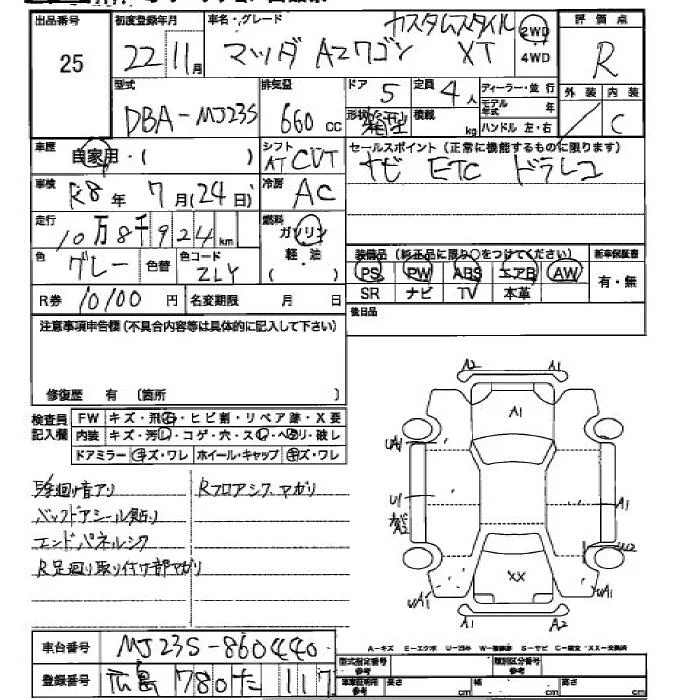 出品番号
25
初度登録年月
22 11月
車名・グレード
カスタムスタイル
マツダ AZワゴン XT
2WD
4WD
評価点
R
外装 内装
/ C
型式
DBA-MJ23S
排気量
660 cc
ドア 5
定員 4人
形状 箱型
積載 kg
ディーラー・並行
モデル年式 年
ハンドル 左・右
車歴
自家用・( )
シフト
AT CVT
セールスポイント (正常に機能するものに限ります)
ナビ ETC ドラレコ
車検
R8年 7月(24日)
冷房
AC
走行
10万8千924km
燃料
ガソリン
軽・油
( )
色 グレー 色替
色コード
ZLY
装備品 (純正品に限り○をつけてください)
PS PW ABS エアB AW
SR ナビ TV 本革
新車保証書
有・無
R券 10100円
名変期限 月 日
後日品
注意事項申告欄 (不具合内容等は具体的に記入して下さい)
修復歴 有 〔箇所 〕
検査員記入欄
FW キズ・飛石・ヒビ割・リペア跡・X要
内装 キズ・汚レ・コゲ・穴・スレ・ヘタリ・破レ
ドアミラー キズ・ワレ ホイール・キャップ キズ・ワレ
バックドアシール貼り
エンドパネルシワ
R足廻り取り付け部マガリ
Rフロアシワ、マガリ
A2 A1
A1
UA1
U1
A2
A1
U2
XX
UA1 UA1
A1 A2
A-キズ E-エクボ U-凹 W-補修跡 S-サビ C-腐食 XX-交換済
車台番号
MJ23S-860440
登録番号
広島 780 た 117
型式指定番号 参考
類別区分番号 参考
車庫証明用 参考
長さ cm 幅 cm 高さ cm